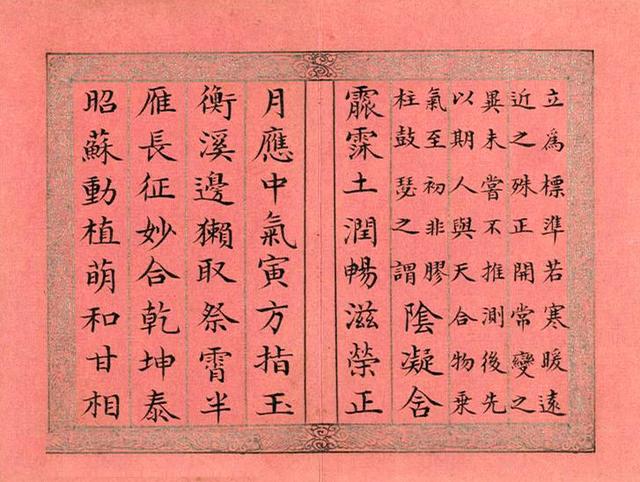 立為標準若寒暖遠
近之殊正開常變之
異未嘗不推測後先
以期人與天合物乗
氣至初非膠
柱鼓瑟之謂
陰凝舍
霢霂土潤暢滋榮正
月應中氣寅方指玉
衡溪邊獺取祭霄半
雁長征妙合乾坤泰
昭蘇動植萌和甘相